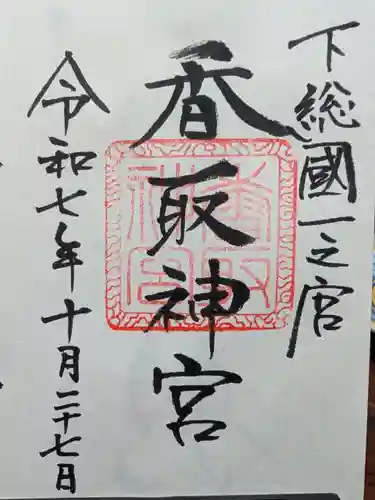 下総國一之宮
香取神宮
令和七年十月二十七日